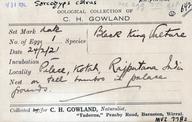 Sarcogyps calvus
OOLOGICAL COLLECTION OF
C. H. GOWLAND
642
Set Mark Black King Vulture
No. of Eggs 1 Species
Date 14/2/21 Incubation
Locality Palace, Kotah, Rajputana, India
Nest on tall bamboo in palace
grounds.
Collected for C. H. GOWLAND, Naturalist,
"Tadorna," Pensby Road, Barnston, Wirral